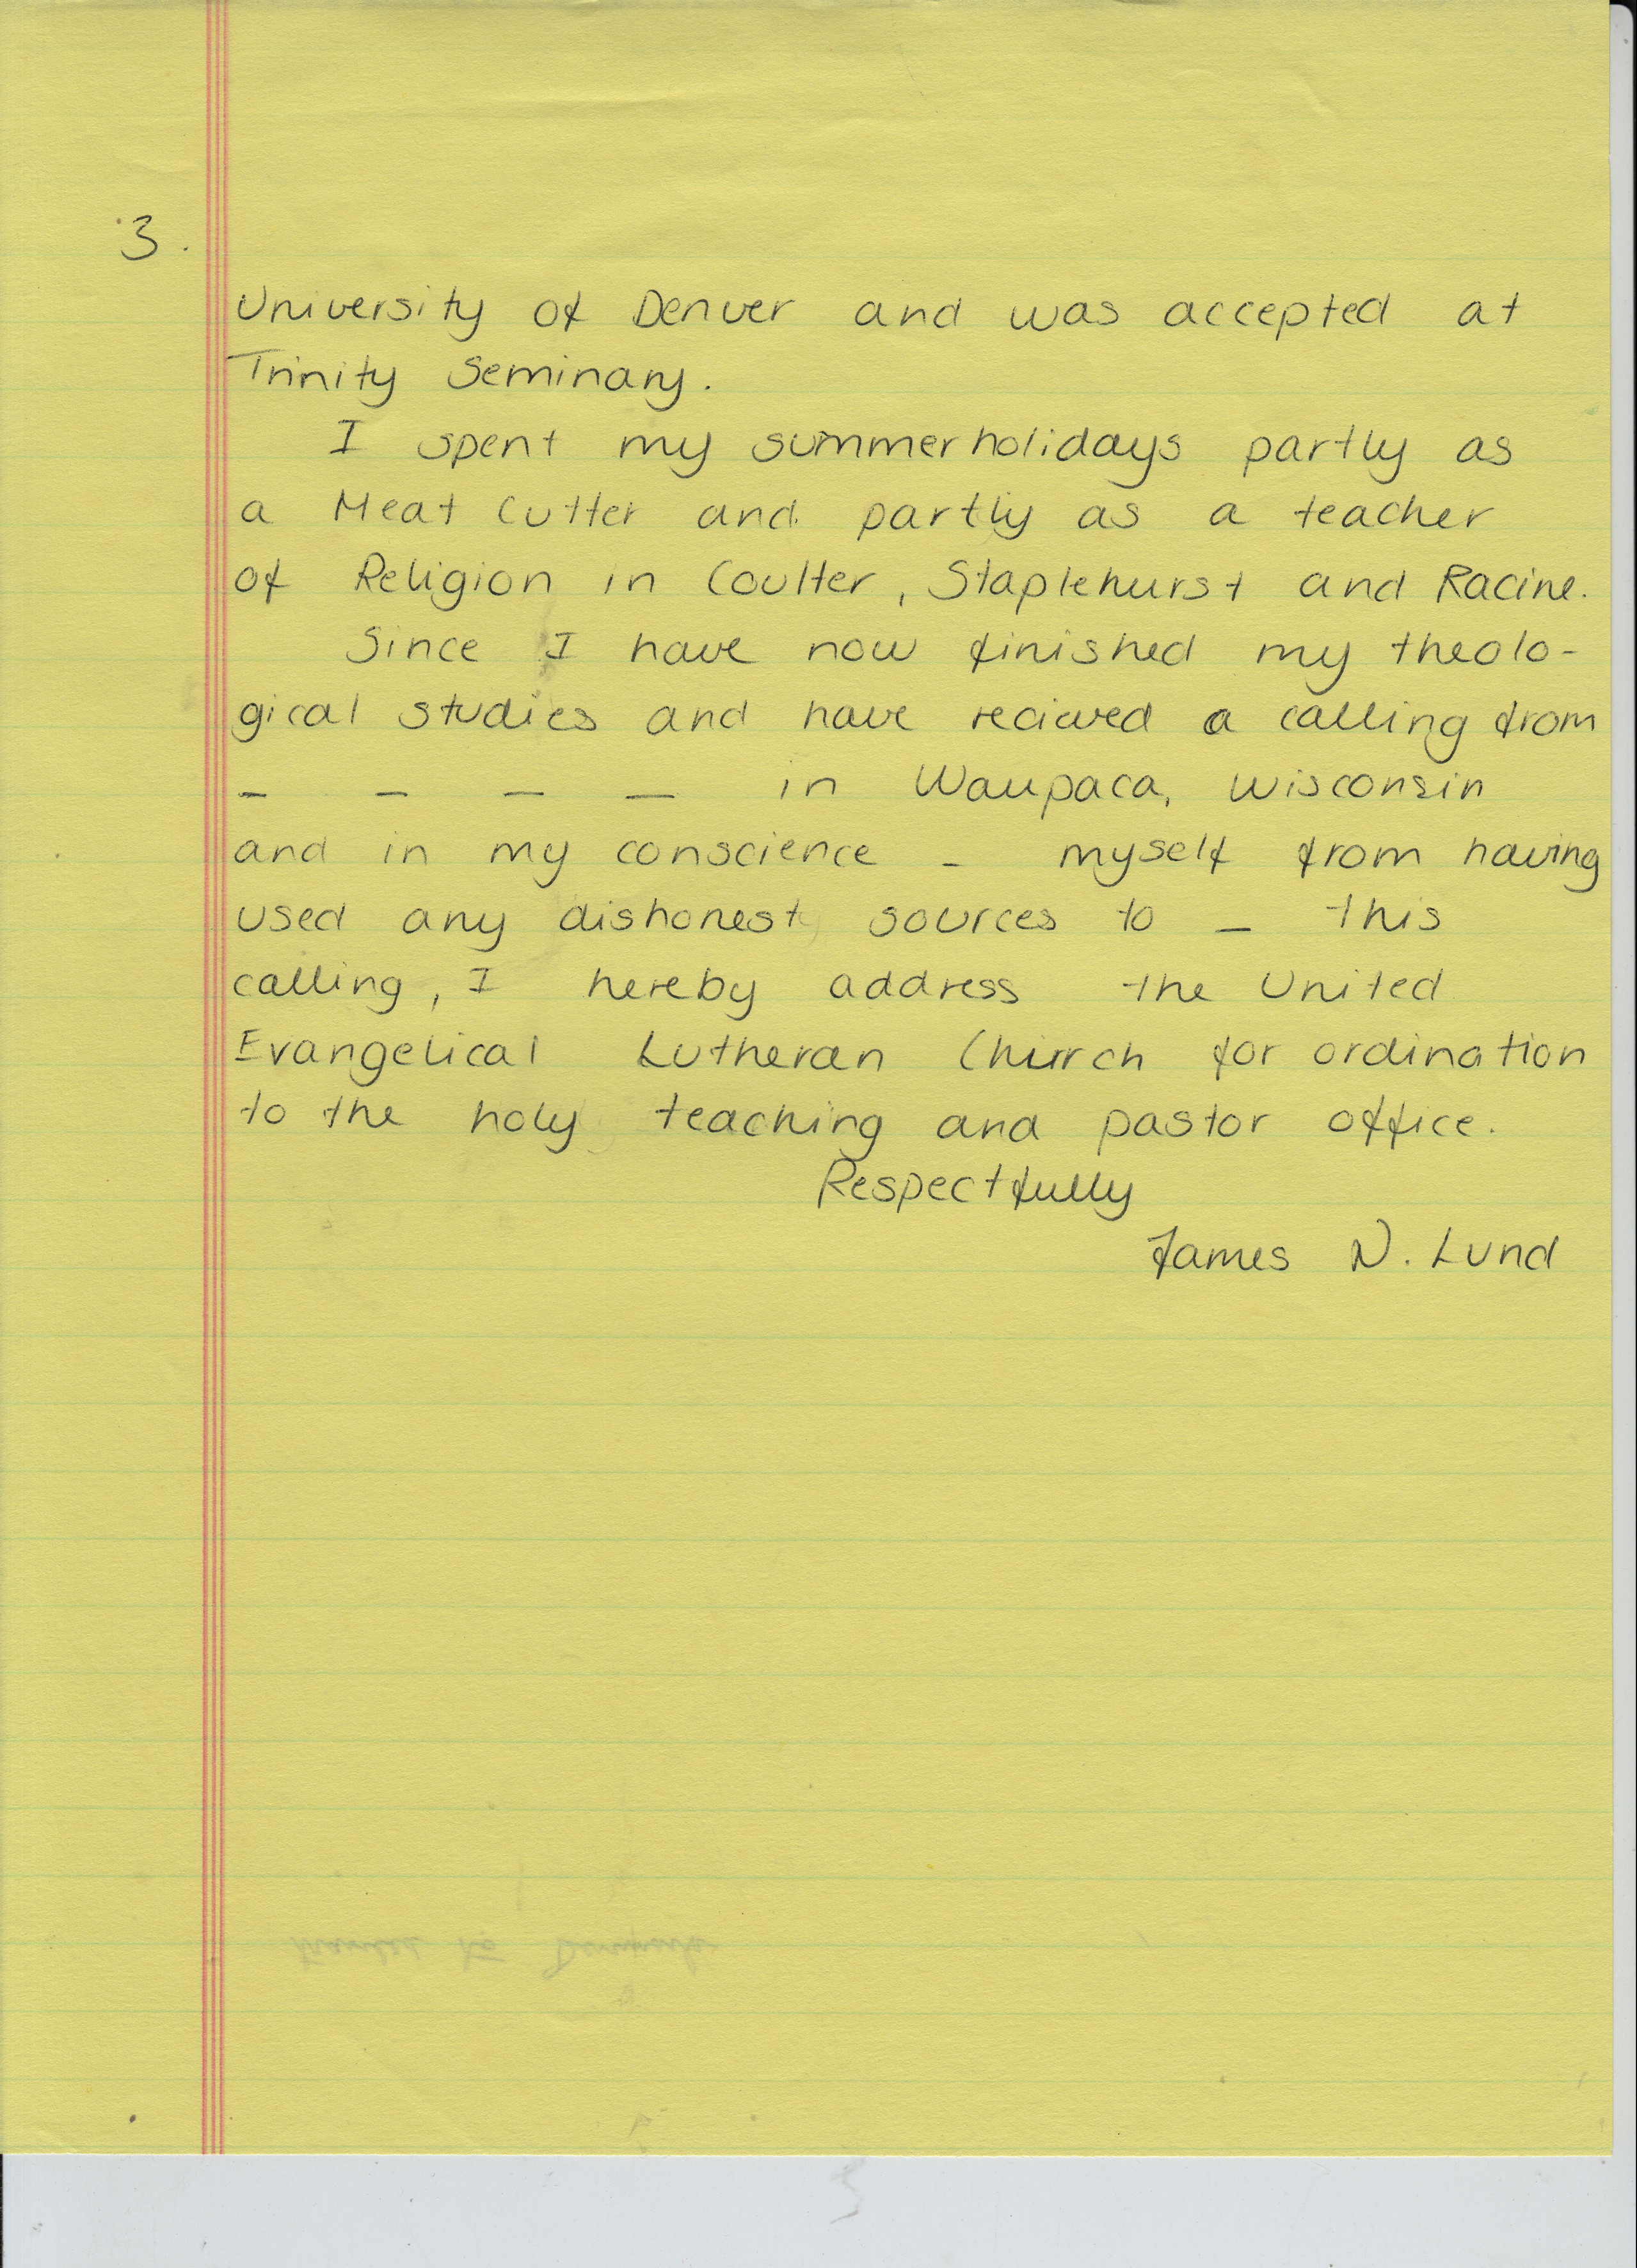 3.
University of Denver and was accepted at
Trinity Seminary.
I spent my summerholidays partly as
a Meat Cutter and partly as a teacher
of Religion in Coulter, Staplehurst and Racine.
Since I have now finished my theolo-
gical studies and have recieved a calling from
– – – – in Waupaca, Wisconsin
and in my conscience – myself from having
used any dishonest sources to – this
calling, I hereby address the United
Evangelical Lutheran Church for ordination
to the holy teaching and pastor office.
Respectfully
James N. Lund